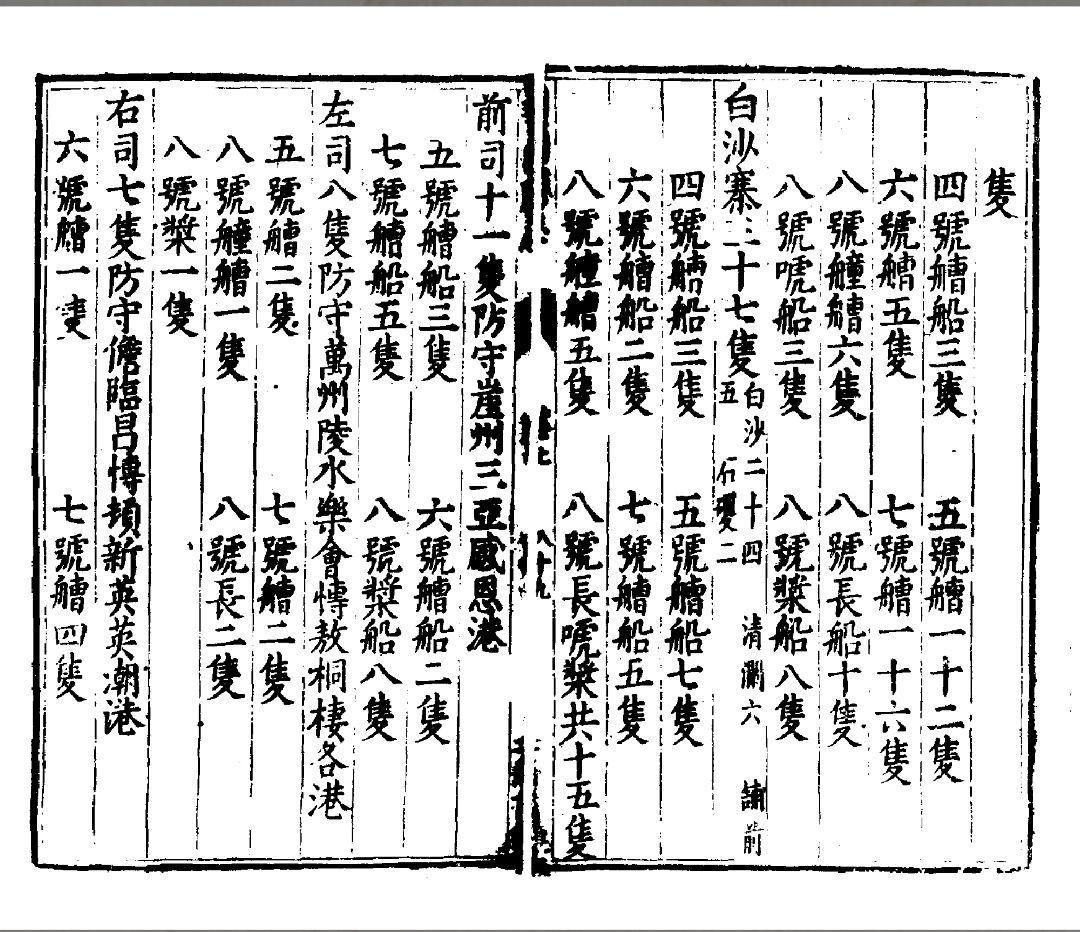 隻
四號艚船三隻 五號艚一十二隻
六號艚五隻 七號艚一十六隻
八號艟艚六隻 八號長船十隻
八號唬船三隻 八號槳船八隻
白沙寨三十七隻 白沙二十四 清瀾六 鋪前五 石䃮二
四號艚船三隻 五號艚船七隻
六號艚船二隻 七號艚船五隻
八號艟艚五隻 八號長唬槳共十五隻
前司十一隻防守崖州三亞感恩港
五號艚船三隻 六號艚船二隻
七號艚船五隻 八號槳船八隻
左司八隻防守萬州陵水樂會博敖桐棲各港
五號艚二隻 七號艚二隻
八號艟艚一隻 八號長二隻
八號槳一隻
右司七隻防守儋臨昌博頓新英英潮港
六號艚一隻 七號艚四隻